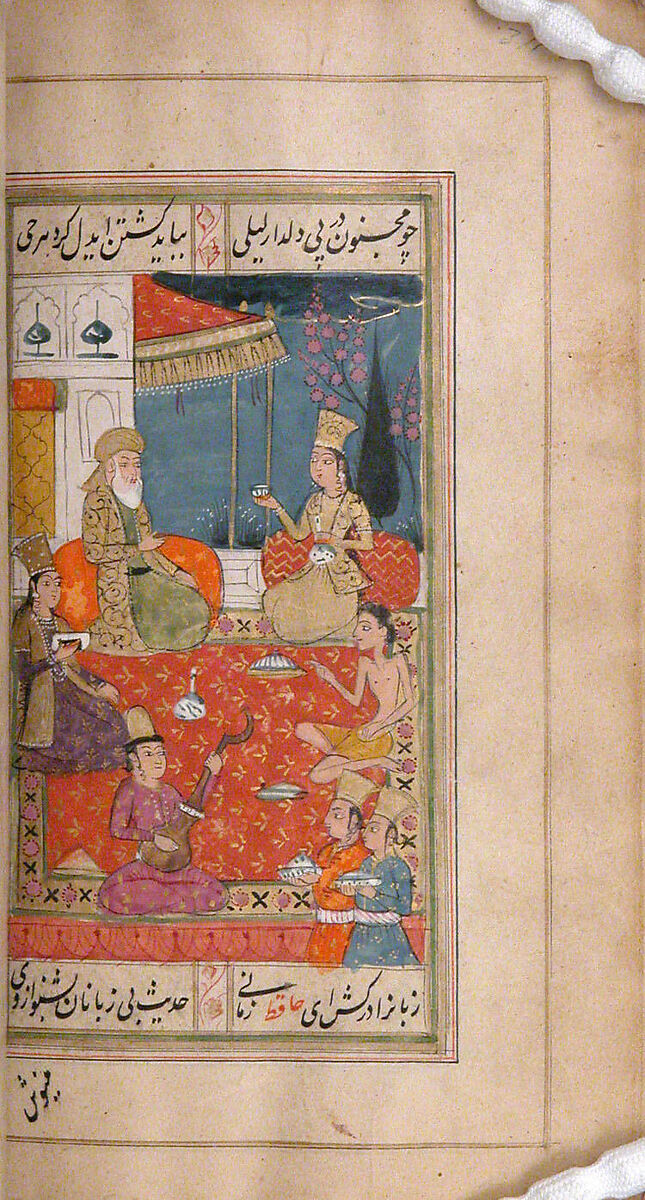 چو مجنون در پی دلدار لیلی
بباید کشتن ایدل کرد هر حی
زبانرا درکش ای حافظ زمانی
حدیث بی زبانان بشنو از نی